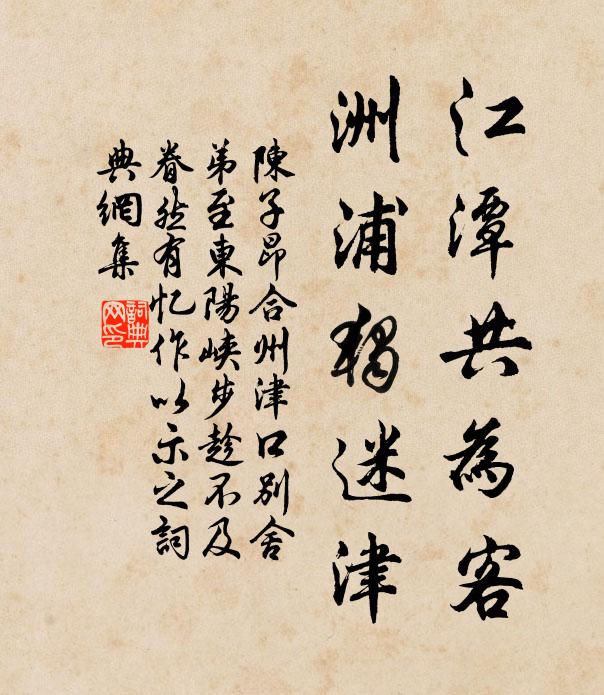 江潭共為客
洲浦獨迷津
陳子昂合州津口別舍
弟至東陽峽步趁不及
眷然有忆作以示之詞
典網集
詞典
网印